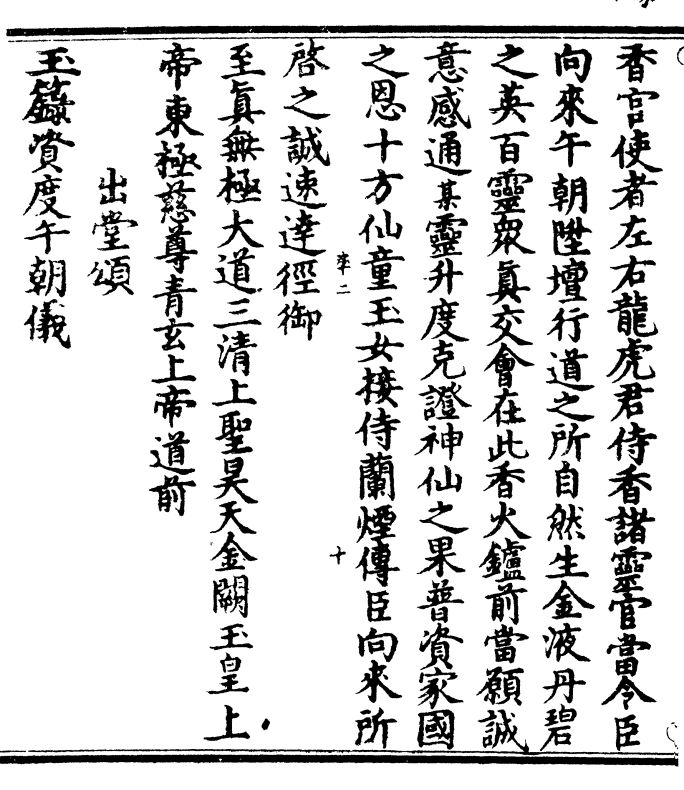 香官使者左右龍虎君侍香諸靈官當令臣
向來午朝陞壇行道之所自然生金液丹碧
之英百靈眾真交會在此香火鑪前當願誠
意感通某靈升度克證神仙之果普資家國
之恩十方仙童玉女接侍蘭煙傳臣向來所
率二
十
啓之誠速達徑御
至真無極大道三清上聖昊天金闕玉皇上
帝東極慈尊青玄上帝道前
出堂頌
玉籙資度午朝儀